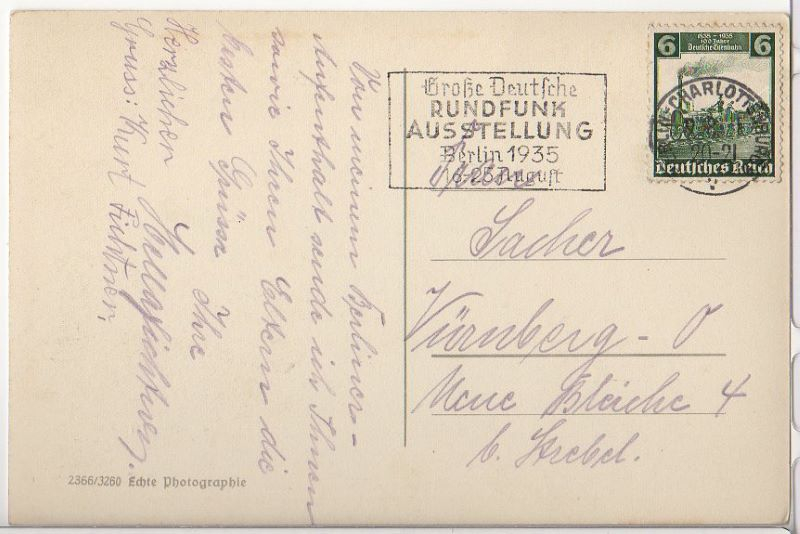 Von meinem Berliner-
Aufenthalt sende ich Ihnen
sowie Ihren Eltern die
besten Grüsse Ihre
Herzlichen
Gruss: Kurt Fichtner.
2366/3260 Echte Photographie
Große Deutsche
RUNDFUNK
AUSSTELLUNG
Berlin 1935
16-25 August
6 1835-1935 6
100 Jahre
Deutsche Eisenbahn
Deutsches Reich
CHARLOTTENBURG
20-21
Sacher
Nürnberg-O
Neue Bleiche 4
b. Strebel.